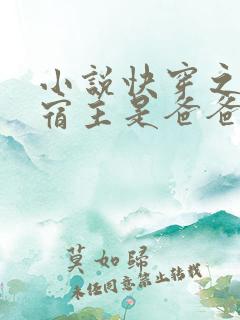 小说快穿之
宿主是爸爸
莫如归
未经同意禁止转载